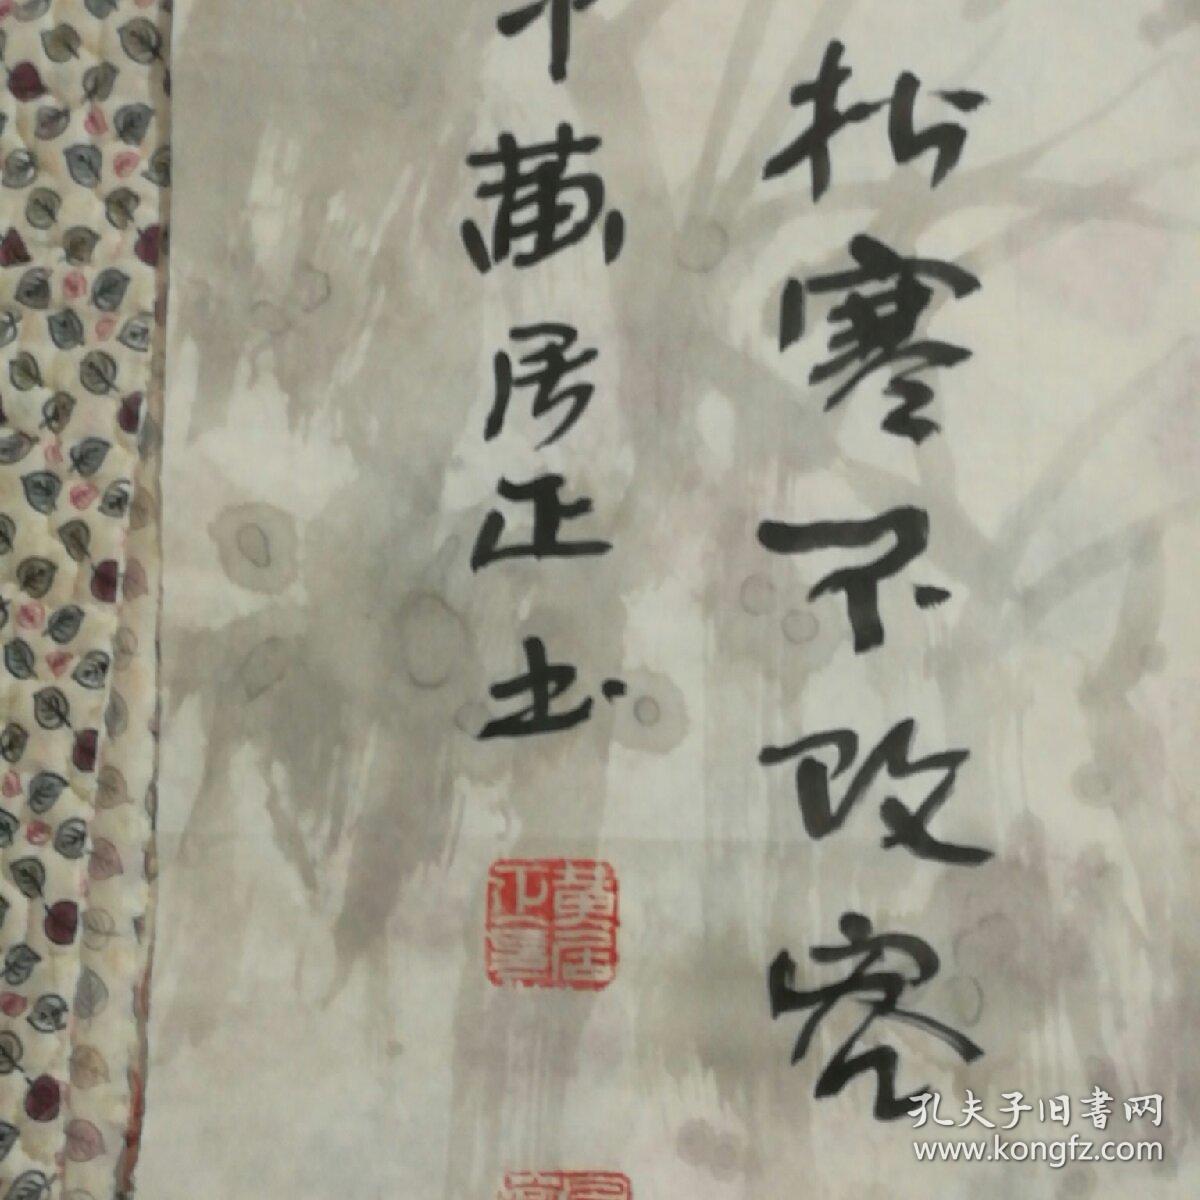 松寒不改容
年黄居正书
黄居正
孔夫子旧書网
www.kongfz.com